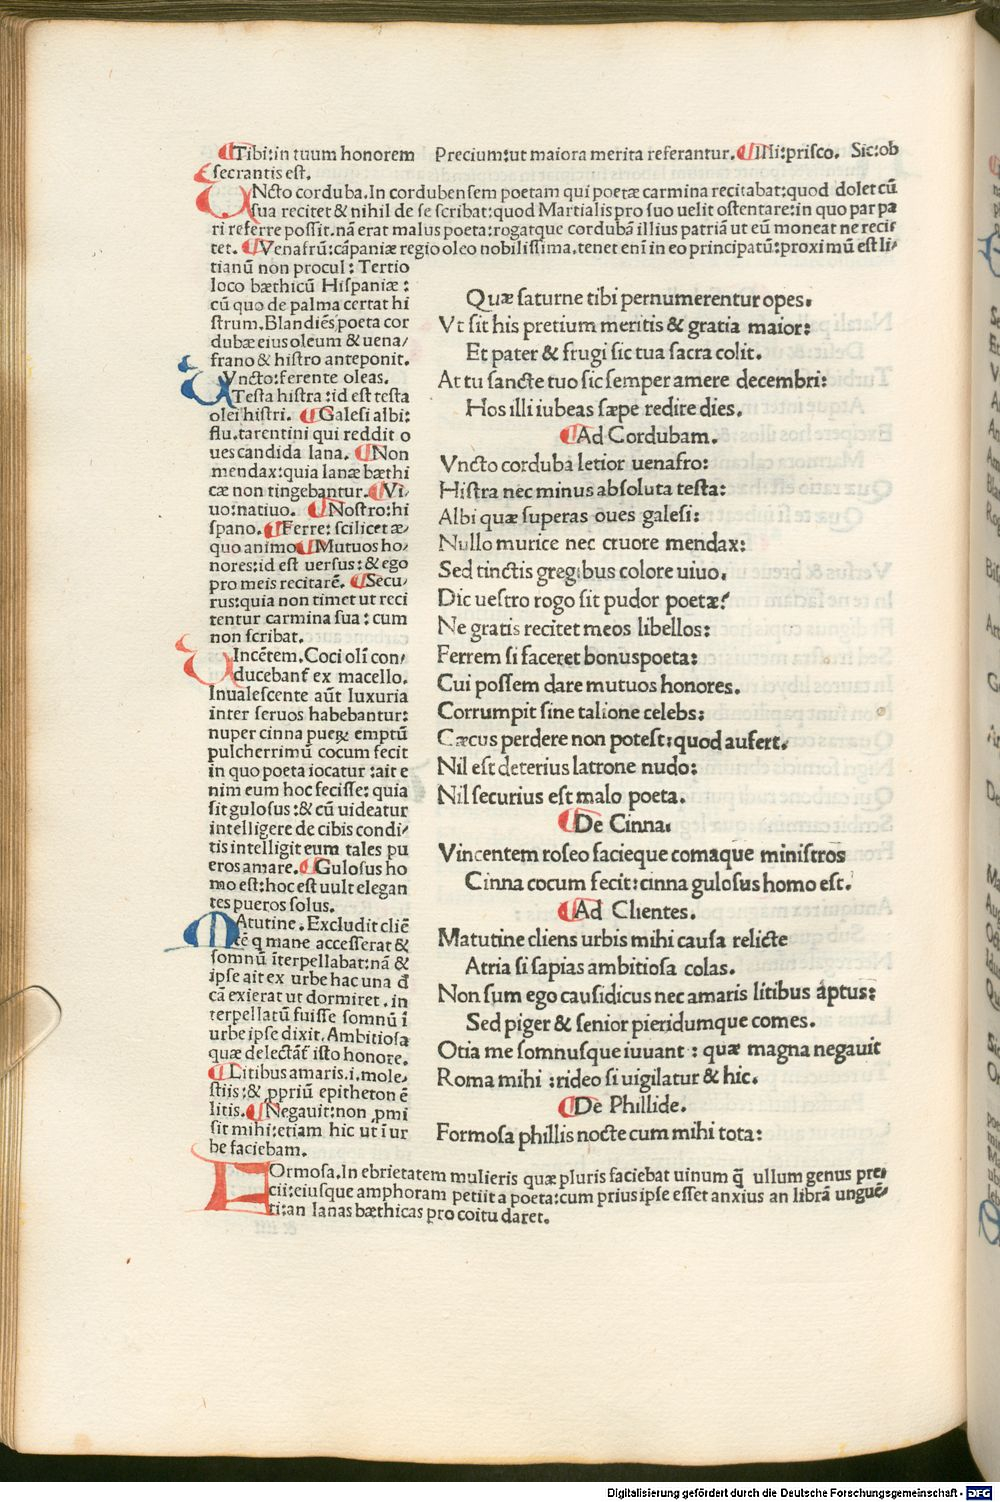 Tibi:in tuum honorem Precium:ut maiora merita referantur. Illi:prisco. Sic:ob
secrantis est.
VNcto corduba.In cordubensem poetam qui poetæ carmina recitabat:quod dolet cū
sua recitet & nihil de se scribat:quod Martialis pro suo uelit ostentare:in quo par pa
ri referre possit.nā erat malus poeta:rogatque cordubā illius patriā ut eū moneat ne reci-
tet. Venafrū:cāpaniæ regio oleo nobilissima.tenet enī in eo principatū:proximū est li-
tianū non procul: Tertio
loco bæthicū Hispaniæ:
cū quo de palma certat hi
strum.Blandiēs poeta cor
dubæ eius oleum & uena-
frano & histro anteponit.
VVncto:ferente oleas.
Testa histra:id est testa
olei histri. Galesi albi:
flu.tarentini qui reddit o
ues candida lana. Non
mendax:quia lanæ bæthi
cæ non tingebantur. Vi-
uo:natiuo. Nostro:hi
spano. Ferre: scilicet æ-
quo animo Mutuos ho-
nores:id est uersus:& ego
pro meis recitarē. Secu-
rus:quia non timet ut reci
tentur carmina sua: cum
non scribat.
VIncētem.Coci olī con-
ducebant̄ ex macello.
Inualescente aūt luxuria
inter seruos habebantur:
nuper cinna puerꝝ emptū
pulcherrimū cocum fecit
in quo poeta iocatur:ait e
nim eum hoc fecisse: quia
sit gulosus:& cū uideatur
intelligere de cibis condi-
tis intelligit eum tales pu
eros amare. Gulosus ho
mo est:hoc est uult elegan
tes pueros solus.
MAtutine.Excludit cliē
tē q mane accesserat &
somnū īterpellabat:nā &
ipse ait ex urbe hac una d̄
cā exierat ut dormiret.in
terpellatū fuisse somnū ī
urbe ipse dixit.Ambitiosa
quæ delectāt̄ isto honore.
Litibus amaris.i.mole-
stiis:& ꝓpriū epitheton ē
litis. Negauit:non ꝓmi
sit mihi:etiam hic ut ī ur
be faciebam.
Quæ saturne tibi pernumerentur opes.
Vt sit his pretium meritis & gratia maior:
Et pater & frugi sic tua sacra colit.
At tu sancte tuo sic semper amere decembri:
Hos illi iubeas sæpe redire dies.
Ad Cordubam.
Vncto corduba letior uenafro:
Histra nec minus absoluta testa:
Albi quæ superas oues galesi:
Nullo murice nec cruore mendax:
Sed tinctis gregibus colore uiuo.
Dic uestro rogo sit pudor poetæ?
Ne gratis recitet meos libellos:
Ferrem si faceret bonus poeta:
Cui possem dare mutuos honores.
Corrumpit sine talione celebs:
Cæcus perdere non potest:quod aufert.
Nil est deterius latrone nudo:
Nil securius est malo poeta.
De Cinna.
Vincentem roseo facieque comaque ministros
Cinna cocum fecit:cinna gulosus homo est.
Ad Clientes.
Matutine cliens urbis mihi causa relicte
Atria si sapias ambitiosa colas.
Non sum ego causidicus nec amaris litibus aptus:
Sed piger & senior pieridumque comes.
Otia me somnusque iuuant: quæ magna negauit
Roma mihi :rideo si uigilatur & hic.
De Phillide.
Formosa phillis nocte cum mihi tota:
FOrmosa.In ebrietatem mulieris quæ pluris faciebat uinum q̄ ullum genus pre
cii:eiusque amphoram petiit a poeta:cum prius ipse esset anxius an librā unguē-
ti:an lanas bæthicas pro coitu daret.
Digitalisierung gefördert durch die Deutsche Forschungsgemeinschaft - DFG